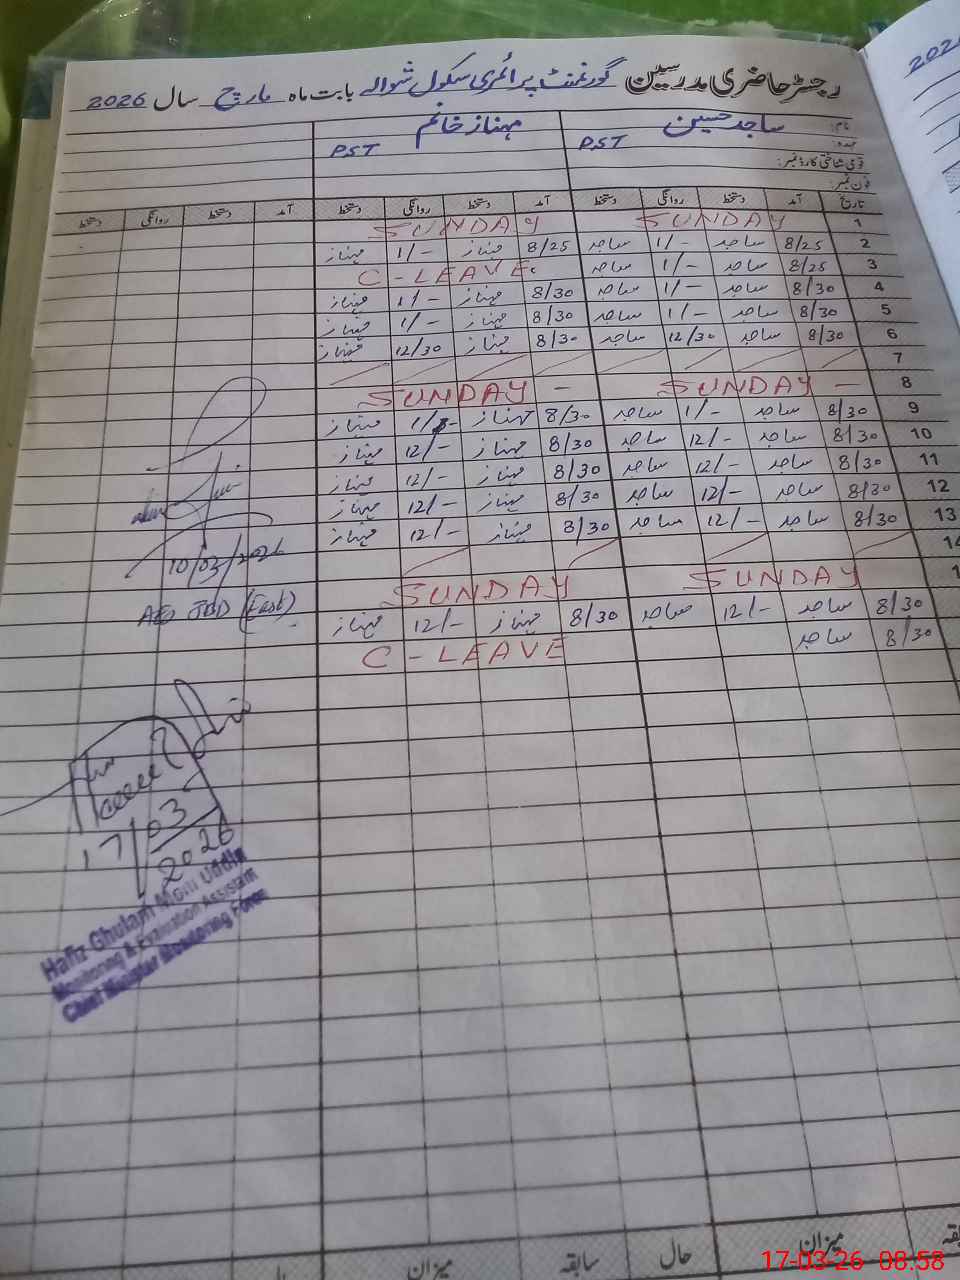 رجسٹر حاضری مدرسین گورنمنٹ پرائمری سکول شوالے بابت ماہ مارچ سال 2026
نام: ساجد حسین مہناز خانم
عہدہ: PST PST
قومی شناختی کارڈ نمبر:
فون نمبر:
تاریخ آمد دستخط روانگی دستخط آمد دستخط روانگی دستخط آمد دستخط روانگی دستخط
1 SUNDAY SUNDAY
2 8/25 ساجد 1/- ساجد 8/25 مہناز 1/- مہناز
3 8/25 ساجد 1/- ساجد C-LEAVE
4 8/30 ساجد 1/- ساجد 8/30 مہناز 1/- مہناز
5 8/30 ساجد 1/- ساجد 8/30 مہناز 1/- مہناز
6 8/30 ساجد 12/30 ساجد 8/30 مہناز 12/30 مہناز
7
8 SUNDAY - SUNDAY -
9 8/30 ساجد 1/- ساجد 8/30 مہناز 1/- مہناز
10 8/30 ساجد 12/- ساجد 8/30 مہناز 12/- مہناز
11 8/30 ساجد 12/- ساجد 8/30 مہناز 12/- مہناز
12 8/30 ساجد 12/- ساجد 8/30 مہناز 12/- مہناز
13 8/30 ساجد 12/- ساجد 8/30 مہناز 12/- مہناز
14
1 SUNDAY SUNDAY
8/30 ساجد 12/- ساجد 8/30 مہناز 12/- مہناز
8/30 ساجد C-LEAVE
10/03/2026
AEO (East)
17/03
2026
Hafiz Ghulam Moin Uddin
Monitoring & Evaluation Assistant
Chief Minister Monitoring Force
میزان حال سابقہ میزان
17-03-26 08:58
2026